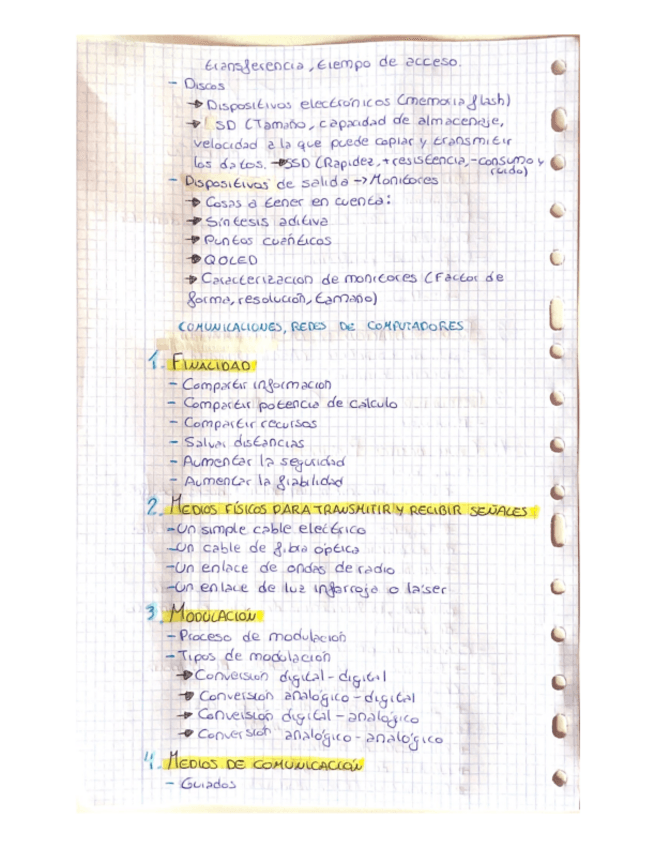 transferencia, tiempo de acceso.
- Discos
→ Dispositivos electrónicos (memoria flash)
→ SD (Tamaño, capacidad de almacenaje,
velocidad a la que puede copiar y transmitir
los datos. → SSD (Rapidez, + resistencia, - consumo y
ruido)
- Dispositivos de salida → Monitores
→ Cosas a tener en cuenta:
→ Síntesis aditiva
→ Puntos cuánticos
→ QOLED
→ Caracterización de monitores (Factor de
forma, resolución, tamaño)
COMUNICACIONES, REDES DE COMPUTADORES
1. FINALIDAD
- Compartir información
- Compartir potencia de cálculo
- Compartir recursos
- Salvar distancias
- Aumentar la seguridad
- Aumentar la fiabilidad
2. MEDIOS FÍSICOS PARA TRANSMITIR Y RECIBIR SEÑALES
- Un simple cable eléctrico
- Un cable de fibra óptica
- Un enlace de ondas de radio
- Un enlace de luz infarroja o láser
3. MODULACIÓN
- Proceso de modulación
- Tipos de modulación
→ Conversión digital - digital
→ Conversión analógico - digital
→ Conversión digital - analógico
→ Conversión analógico - analógico
4. MEDIOS DE COMUNICACIÓN
- Guiados